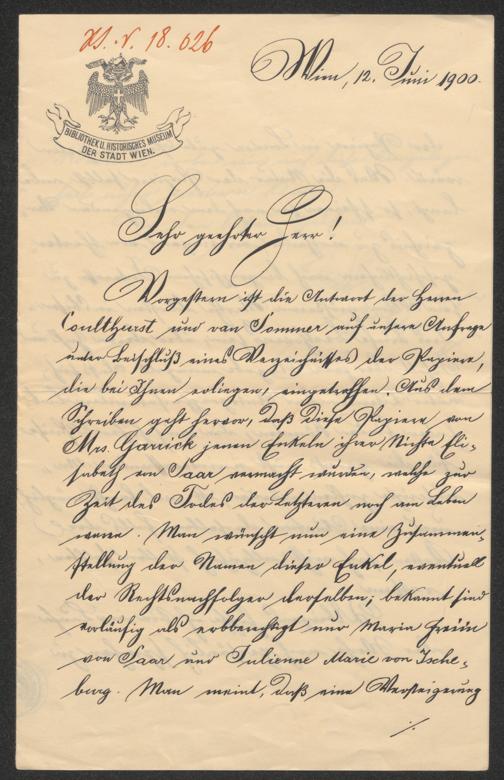 Hs. V. 18. 026
BIBLIOTHEK U. HISTORISCHES MUSEUM
DER STADT WIEN.
Wien, 12. Juni 1900.
Sehr geehrter Herr!
Vorgestern ist die Antwort der Herren
Coulthurst und van Sommer auf unsere Anfrage
unter Beischluß eines Verzeichnisses der Papiere,
die bei Ihnen erliegen, eingetroffen. Aus dem
Schreiben geht hervor, daß diese Papiere von
Mrs. Garrick jenen Enkeln ihrer Nichte Eli-
sabeth von Saar vermacht wurden, welche zur
Zeit des Todes der Letzteren noch am Leben
waren. Man wünscht nun eine Zusammen-
stellung der Namen dieser Enkel, eventuell
der Rechtsnachfolger derselben; bekannt sind
vorläufig als erbberechtigt nur Maria Freiin
von Saar und Julienne Marie von Ische-
burg. Man meint, daß eine Versteigerung
./.